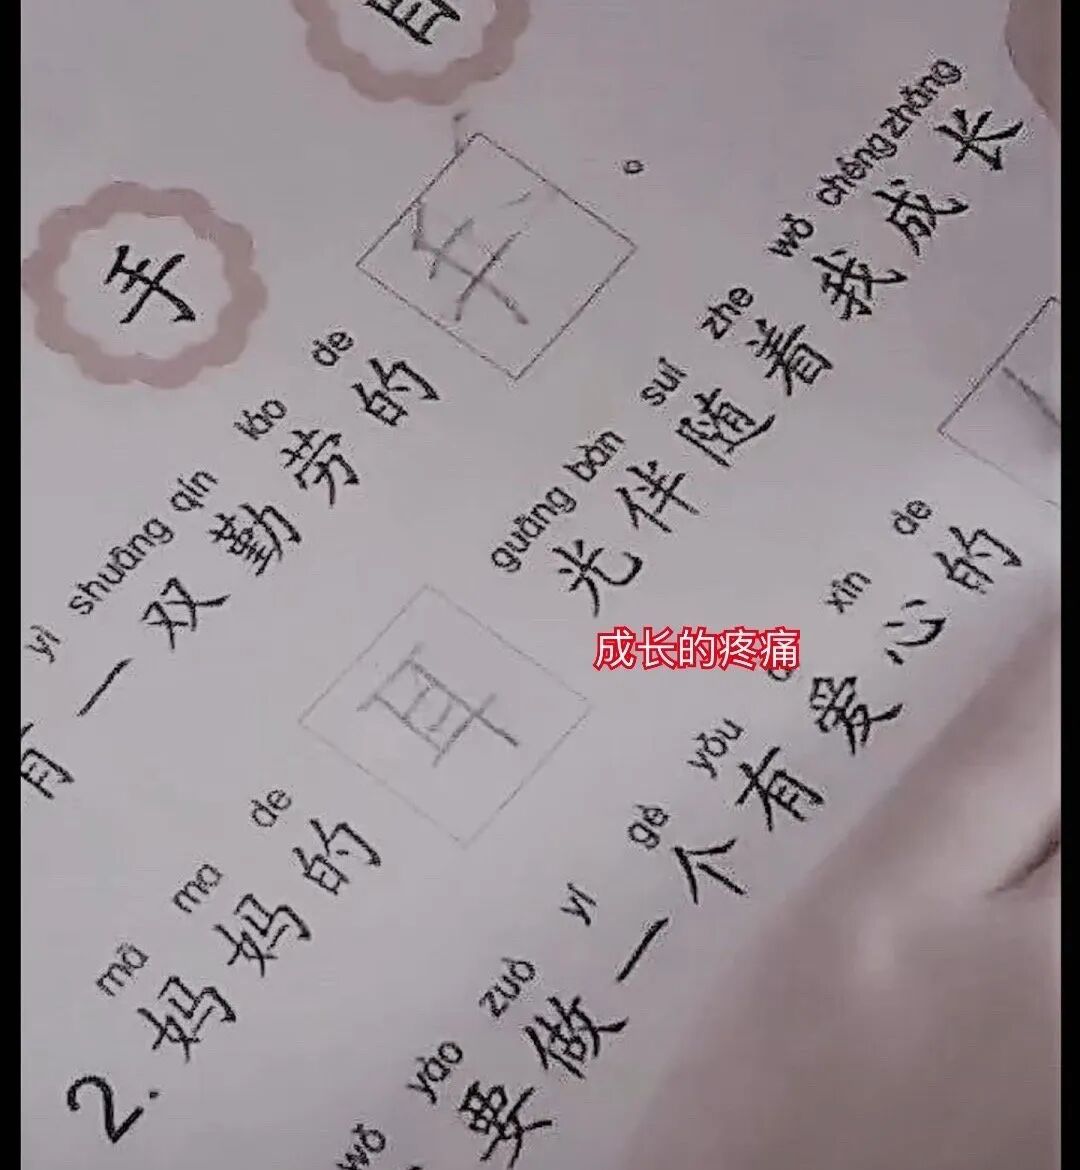 手
yì shuāng qín láo de
有一双勤劳的 。
mā ma de guāng bàn suí zhe wǒ chéng zhǎng
2. 妈妈的耳光伴随着我成长
成长的疼痛
wǒ yào zuò yí gè yǒu xīn de
要做一个有爱心的